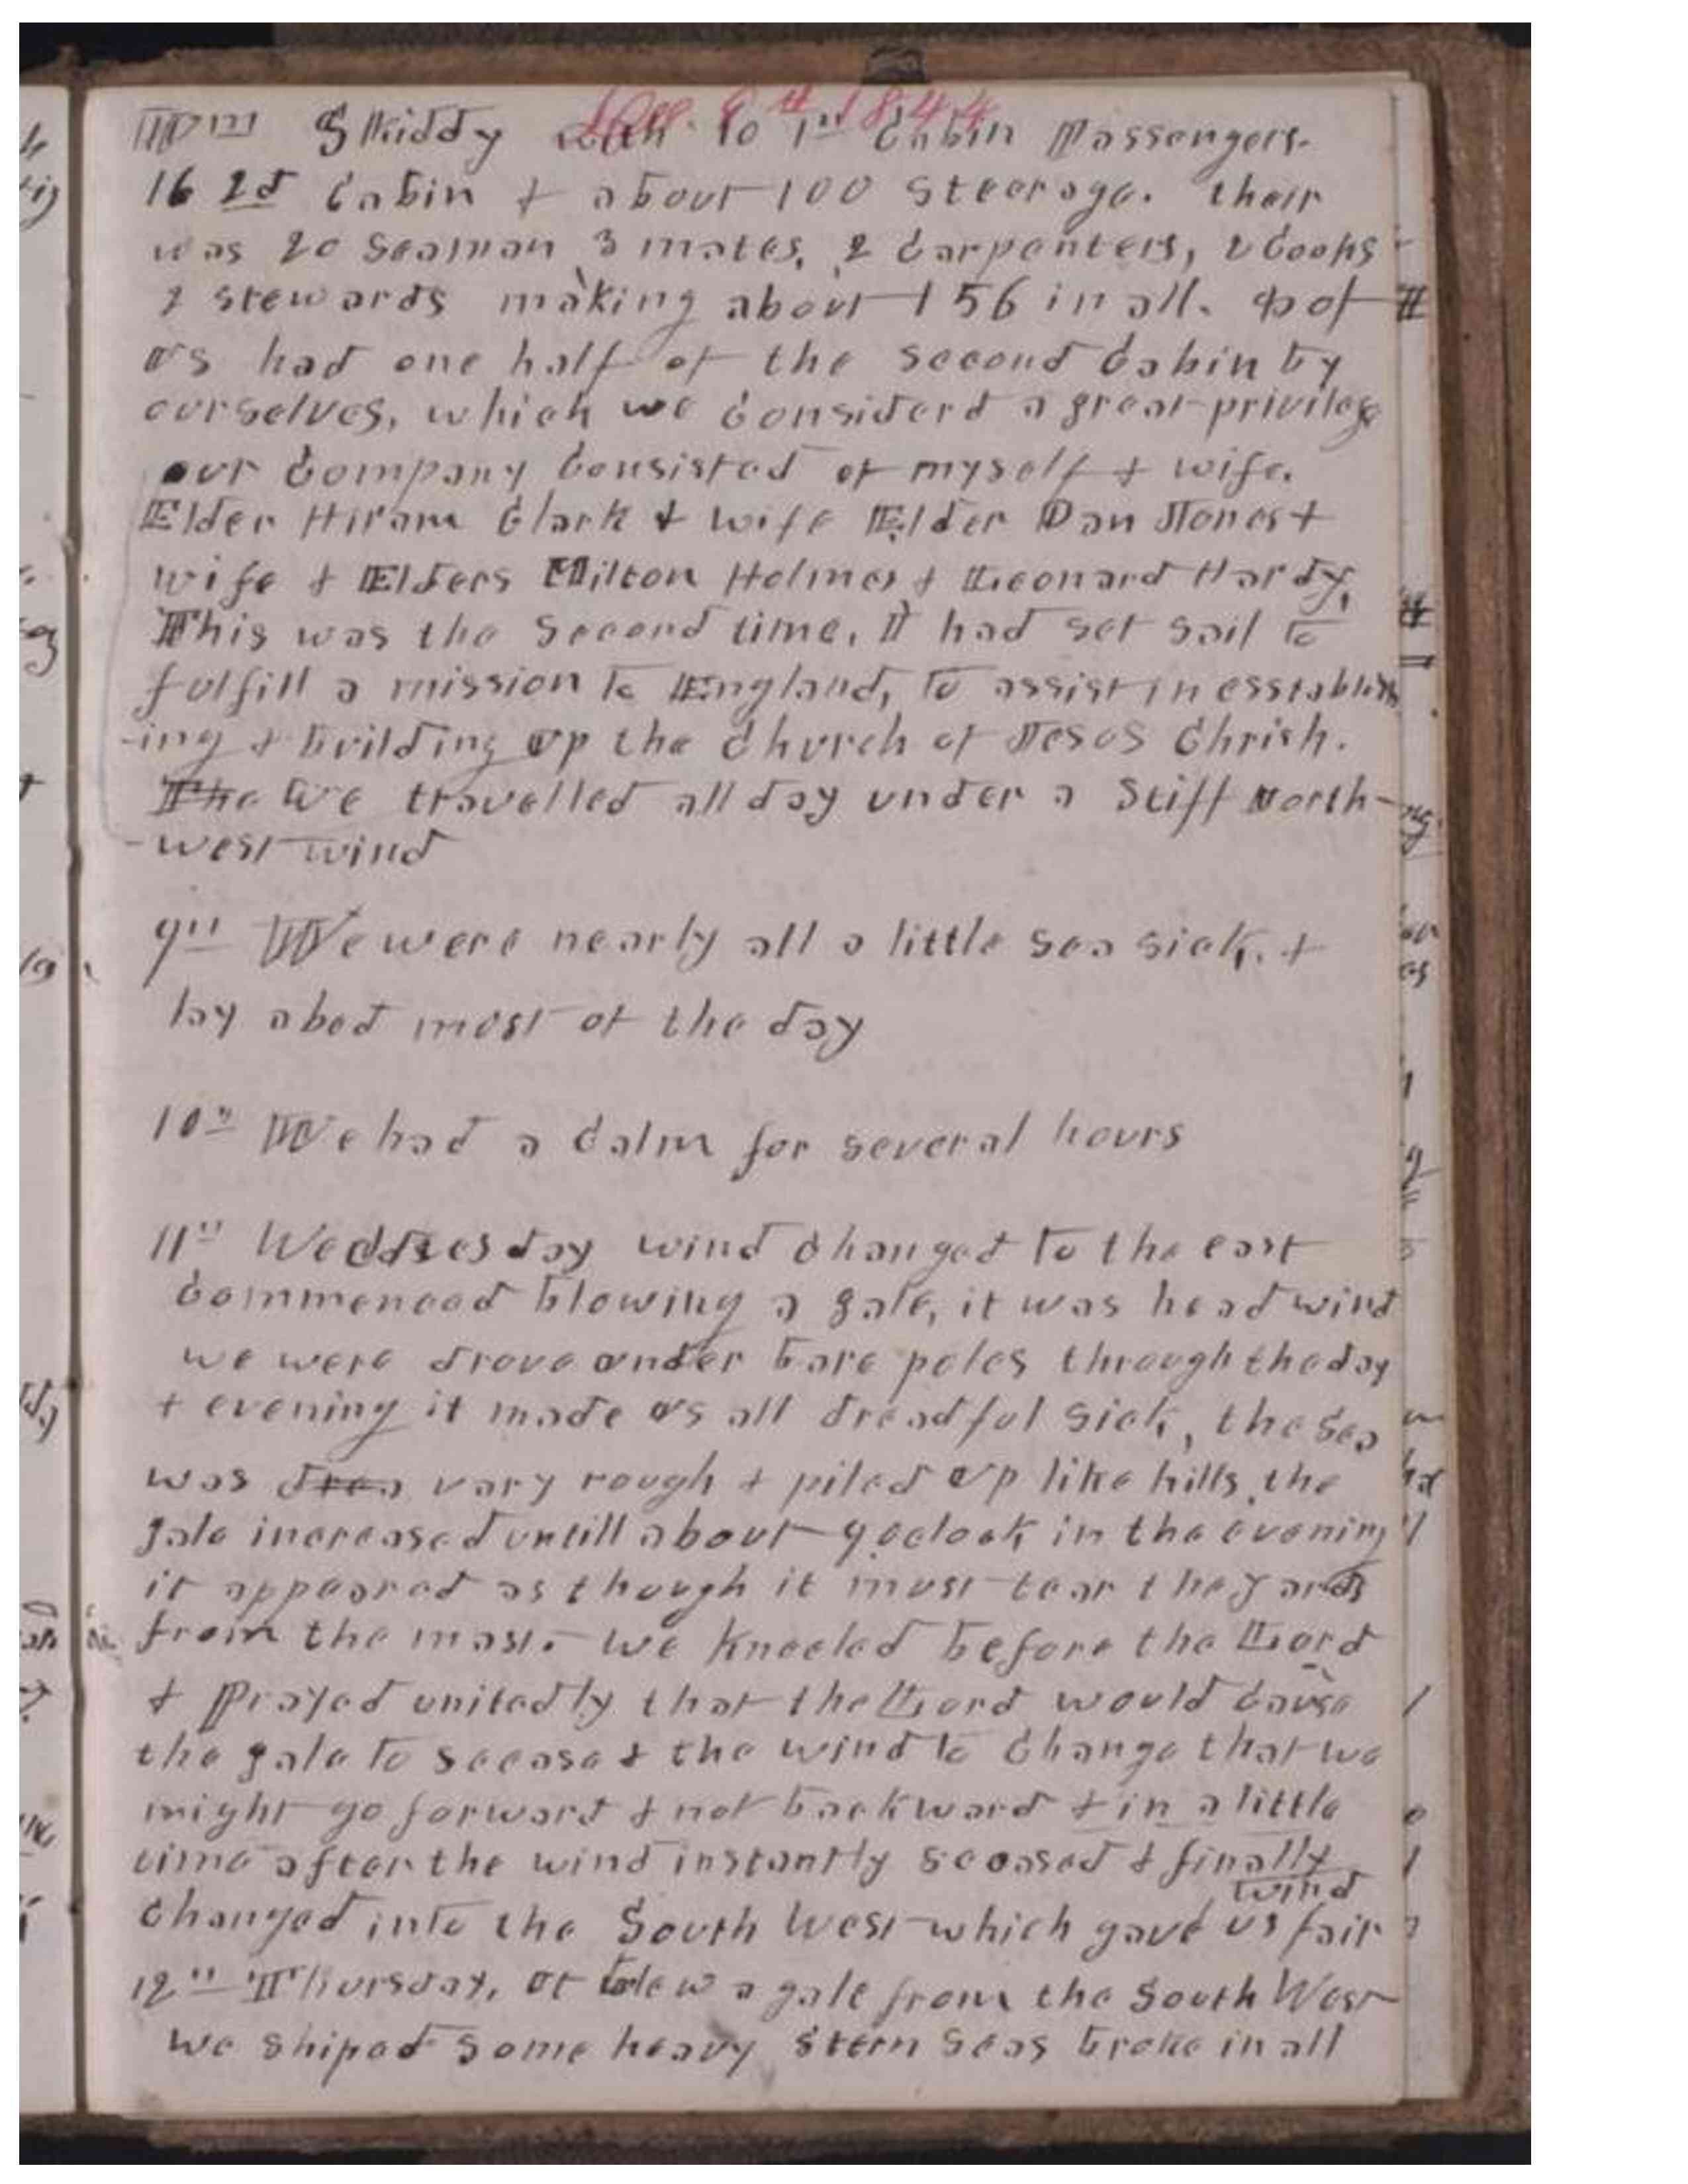 Dec 8th 1844
Wm Skiddy with 10 1st Cabin Passengers.
16 2d Cabin & about 100 Steerage. their
was 20 Seaman 3 mates, 2 Carpenters, 2 Cooks
2 stewards making about 156 in all. 8 of
us had one half of the second Cabin by
ourselves, which we Considerd a great privilege
our Company Consisted of myself & wife.
Elder Hiram Clark & wife Elder Dan Jones &
wife & Elders Milton Holmes & Leonard Hardy,
This was the Second time, I had set sail to
fulfill a mission to England, to assist in esstablish
-ing & building up the Church of Jesus Christ.
The We travelled all day under a Stiff North-
-west wind
9th We were nearly all a little sea sick, &
lay abed most of the day
10th We had a Calm for several hours
11th Weddnesday wind Changed to the east
Commenced blowing a gale, it was head wind
we were drove under bare poles through the day
& evening it made us all dreadful sick, the Sea
was vary rough & piled up like hills, the
gale increased untill about 9 oclock in the evening
it appeared as though it must tear the yards
from the mast. We Kneeled before the Lord
& Prayed unitedly that the Lord would Cause
the gale to seease & the wind to Change that we
might go forward & not backward & in a little
time after the wind instantly seeased & finally
wind
Changed into the South West which gave us fair
12th Thursday, It blew a gale from the South West
we shiped some heavy stern seas broke in all